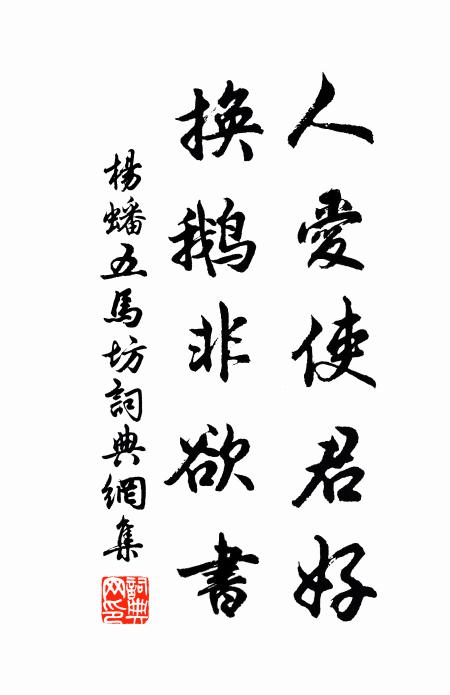 人愛使君好
換鵝非欲書
楊蟠五馬坊詞典網集
詞典網印